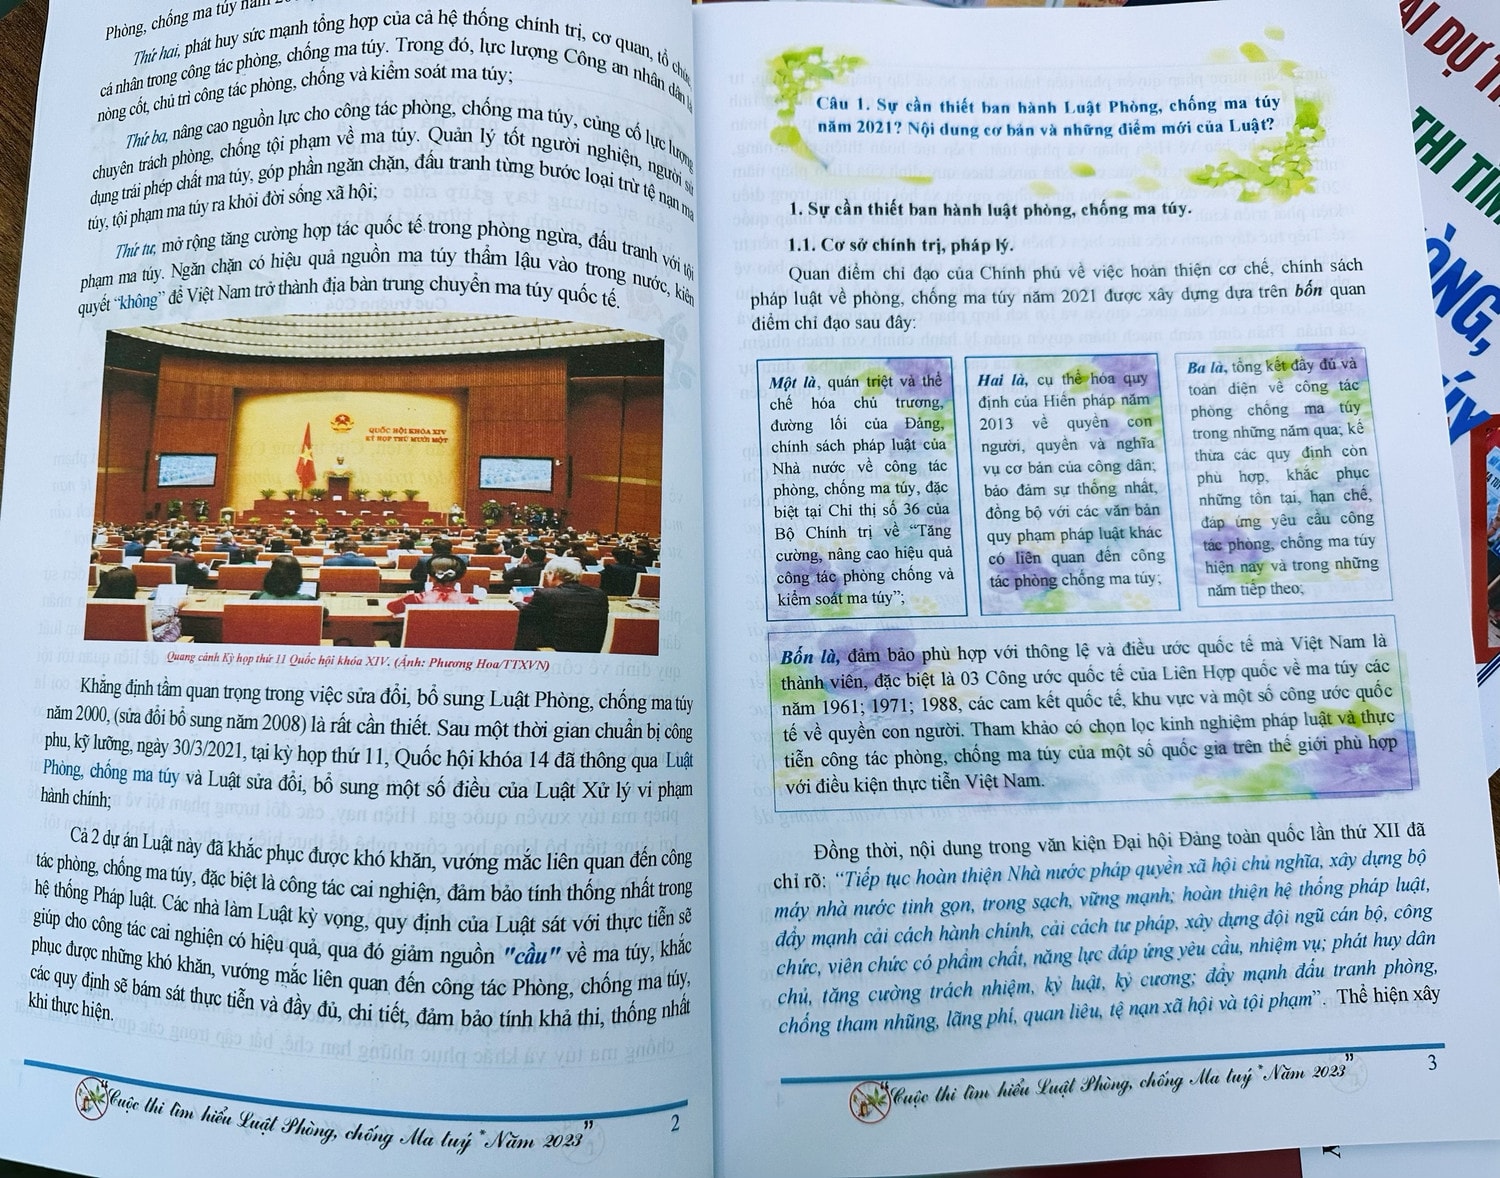 Phòng, chống ma túy năm
Thứ hai, phát huy sức mạnh tổng hợp của cả hệ thống chính trị, cơ quan, tổ chức,
cá nhân trong công tác phòng, chống ma túy. Trong đó, lực lượng Công an nhân dân là
nòng cốt, chủ trì công tác phòng, chống và kiểm soát ma túy;
Thứ ba, nâng cao nguồn lực cho công tác phòng, chống ma túy, củng cố lực lượng
chuyên trách phòng, chống tội phạm về ma túy. Quản lý tốt người nghiện, người sử
dụng trái phép chất ma túy, góp phần ngăn chặn, đấu tranh từng bước loại trừ tệ nạn ma
túy, tội phạm ma túy ra khỏi đời sống xã hội;
Thứ tư, mở rộng tăng cường hợp tác quốc tế trong phòng ngừa, đấu tranh với tội
phạm ma túy. Ngăn chặn có hiệu quả nguồn ma túy thẩm lậu vào trong nước, kiên
quyết “không” để Việt Nam trở thành địa bàn trung chuyển ma túy quốc tế.
QUỐC HỘI KHÓA XIV
KỲ HỌP THỨ MƯỜI MỘT
Quang cảnh Kỳ họp thứ 11 Quốc hội khóa XIV. (Ảnh: Phương Hoa/TTXVN)
Khẳng định tầm quan trọng trong việc sửa đổi, bổ sung Luật Phòng, chống ma túy
năm 2000, (sửa đổi bổ sung năm 2008) là rất cần thiết. Sau một thời gian chuẩn bị công
phu, kỹ lưỡng, ngày 30/3/2021, tại kỳ họp thứ 11, Quốc hội khóa 14 đã thông qua Luật
Phòng, chống ma túy và Luật sửa đổi, bổ sung một số điều của Luật Xử lý vi phạm
hành chính;
Cả 2 dự án Luật này đã khắc phục được khó khăn, vướng mắc liên quan đến công
tác phòng, chống ma túy, đặc biệt là công tác cai nghiện, đảm bảo tính thống nhất trong
hệ thống Pháp luật. Các nhà làm Luật kỳ vọng, quy định của Luật sát với thực tiễn sẽ
giúp cho công tác cai nghiện có hiệu quả, qua đó giảm nguồn "cầu" về ma túy, khắc
phục được những khó khăn, vướng mắc liên quan đến công tác Phòng, chống ma túy,
các quy định sẽ bám sát thực tiễn và đầy đủ, chi tiết, đảm bảo tính khả thi, thống nhất
khi thực hiện.
“Cuộc thi tìm hiểu Luật Phòng, chống Ma tuý” Năm 2023”
2
Câu 1. Sự cần thiết ban hành Luật Phòng, chống ma túy
năm 2021? Nội dung cơ bản và những điểm mới của Luật?
1. Sự cần thiết ban hành luật phòng, chống ma túy.
1.1. Cơ sở chính trị, pháp lý.
Quan điểm chỉ đạo của Chính phủ về việc hoàn thiện cơ chế, chính sách
pháp luật về phòng, chống ma túy năm 2021 được xây dựng dựa trên bốn quan
điểm chỉ đạo sau đây:
Một là, quán triệt và thể
chế hóa chủ trương,
đường lối của Đảng,
chính sách pháp luật của
Nhà nước về công tác
phòng, chống ma túy, đặc
biệt tại Chỉ thị số 36 của
Bộ Chính trị về “Tăng
cường, nâng cao hiệu quả
công tác phòng chống và
kiểm soát ma túy”;
Hai là, cụ thể hóa quy
định của Hiến pháp năm
2013 về quyền con
người, quyền và nghĩa
vụ cơ bản của công dân;
bảo đảm sự thống nhất,
đồng bộ với các văn bản
quy phạm pháp luật khác
có liên quan đến công
tác phòng chống ma túy;
Ba là, tổng kết đầy đủ và
toàn diện về công tác
phòng chống ma túy
trong những năm qua; kế
thừa các quy định còn
phù hợp, khắc phục
những tồn tại, hạn chế,
đáp ứng yêu cầu công
tác phòng, chống ma túy
hiện nay và trong những
năm tiếp theo;
Bốn là, đảm bảo phù hợp với thông lệ và điều ước quốc tế mà Việt Nam là
thành viên, đặc biệt là 03 Công ước quốc tế của Liên Hợp quốc về ma túy các
năm 1961; 1971; 1988, các cam kết quốc tế, khu vực và một số công ước quốc
tế về quyền con người. Tham khảo có chọn lọc kinh nghiệm pháp luật và thực
tiễn công tác phòng, chống ma túy của một số quốc gia trên thế giới phù hợp
với điều kiện thực tiễn Việt Nam.
Đồng thời, nội dung trong văn kiện Đại hội Đảng toàn quốc lần thứ XII đã
chỉ rõ: “Tiếp tục hoàn thiện Nhà nước pháp quyền xã hội chủ nghĩa, xây dựng bộ
máy nhà nước tinh gọn, trong sạch, vững mạnh; hoàn thiện hệ thống pháp luật,
đẩy mạnh cải cách hành chính, cải cách tư pháp, xây dựng đội ngũ cán bộ, công
chức, viên chức có phẩm chất, năng lực đáp ứng yêu cầu, nhiệm vụ; phát huy dân
chủ, tăng cường trách nhiệm, kỷ luật, kỷ cương; đẩy mạnh đấu tranh phòng,
chống tham nhũng, lãng phí, quan liêu, tệ nạn xã hội và tội phạm”. Thể hiện xây
“Cuộc thi tìm hiểu Luật Phòng, chống Ma tuý” Năm 2023”
3
DỰ
THI TÌM